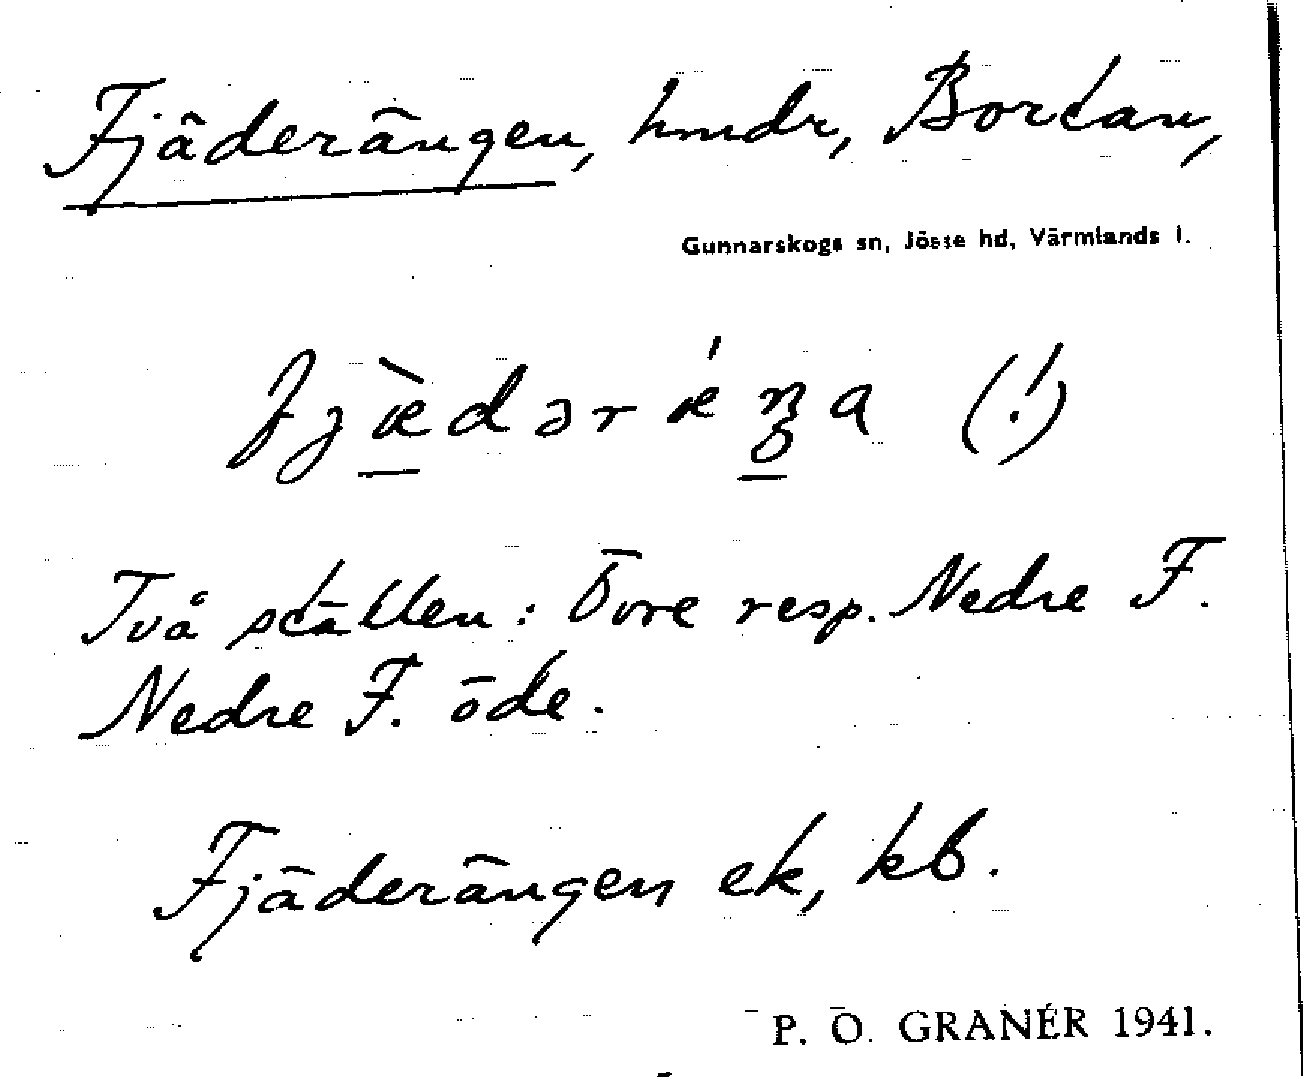 Fjäderängen, hmdr, Bortan,
Gunnarskogs sn, Jösse hd, Värmlands l.
fjæ̀dərǽŋa (!)
Två ställen: Övre resp. Nedre F.
Nedre F. öde.
Fjäderängen ek, kb.
P. O. GRANÉR 1941.